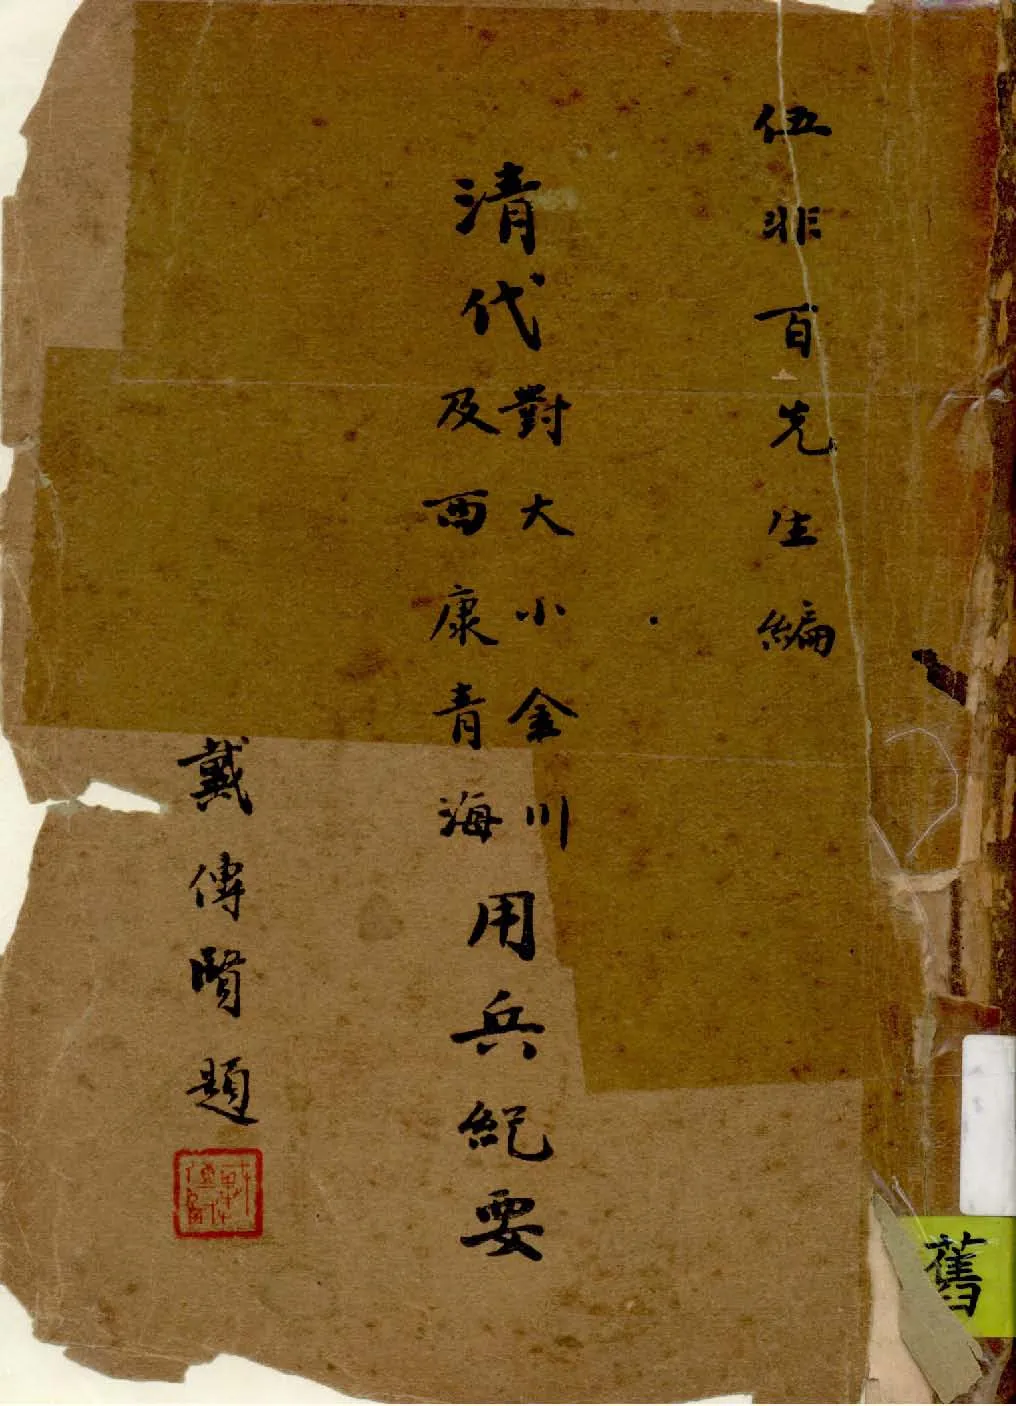 伍非百先生編
清代對大小金川及西康青海用兵紀要
戴傳賢題
舊